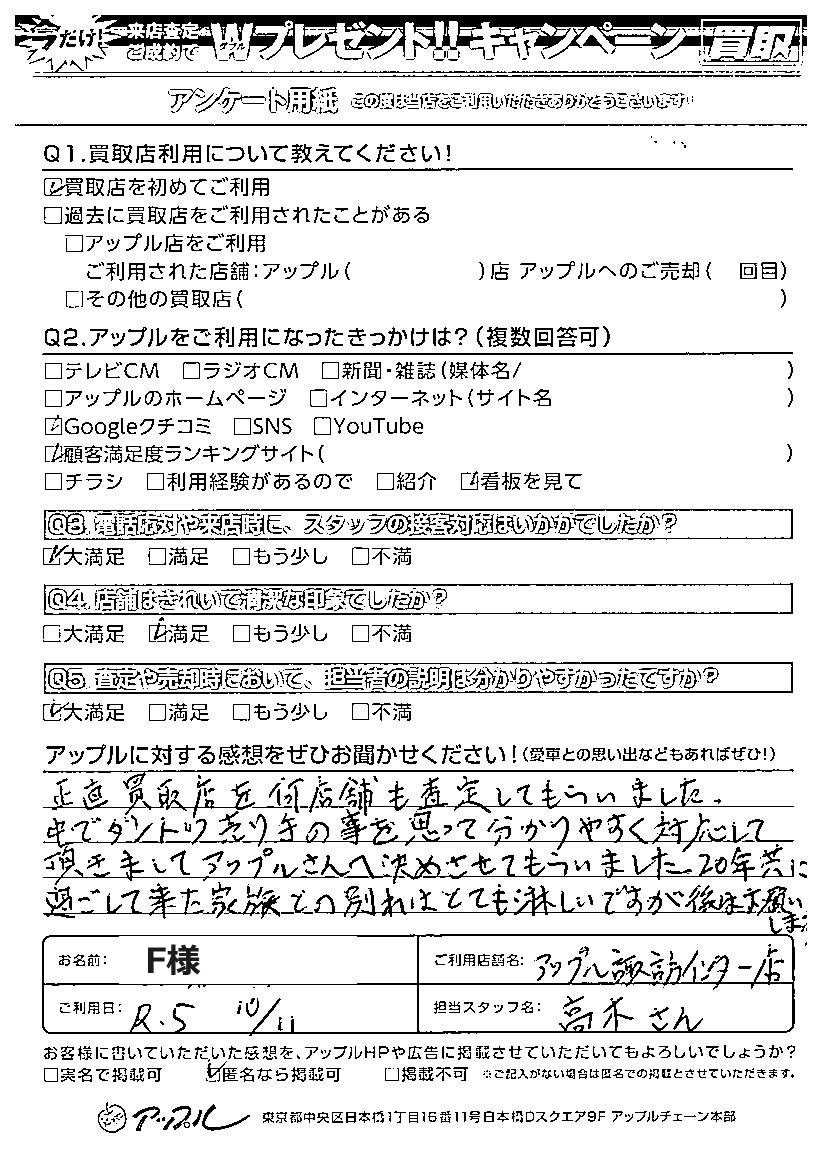 だけ! 来店査定 ご成約で Wプレゼント!! キャンペーン 買取
アンケート用紙 この度は当店をご利用いただきありがとうございます!
Q1.買取店利用について教えてください!
☑買取店を初めてご利用
□過去に買取店をご利用されたことがある
□アップル店をご利用
ご利用された店舗:アップル( )店 アップルへのご売却( 回目)
□その他の買取店( )
Q2.アップルをご利用になったきっかけは?(複数回答可)
□テレビCM □ラジオCM □新聞・雑誌(媒体名/ )
□アップルのホームページ □インターネット(サイト名 )
☑Googleクチコミ □SNS □YouTube
☑顧客満足度ランキングサイト( )
□チラシ □利用経験があるので □紹介 ☑看板を見て
Q3.電話応対や来店時に、スタッフの接客対応はいかがでしたか?
☑大満足 □満足 □もう少し □不満
Q4.店舗はきれいで清潔な印象でしたか?
□大満足 ☑満足 □もう少し □不満
Q5.査定や売却時において、担当者の説明は分かりやすかったですか?
☑大満足 □満足 □もう少し □不満
アップルに対する感想をぜひお聞かせください!(愛車との思い出などもあればぜひ!)
正直買取店を何店舗も査定してもらいました。
中でダントツ売り手の事を思って分かりやすく対応して
頂きましてアップルさんへ決めさせてもらいました。20年共に
過ごして来た家族との別れはとても淋しいですが後はお願い
します
お名前: F様 ご利用店舗名: アップル諏訪インター店
ご利用日: R.5 10/11 担当スタッフ名: 高木さん
お客様に書いていただいた感想を、アップルHPや広告に掲載させていただいてもよろしいでしょうか?
□実名で掲載可 ☑匿名なら掲載可 □掲載不可 ※ご記入がない場合は匿名での掲載とさせていただきます。
アップル 東京都中央区日本橋1丁目16番11号日本橋Dスクエア9F アップルチェーン本部